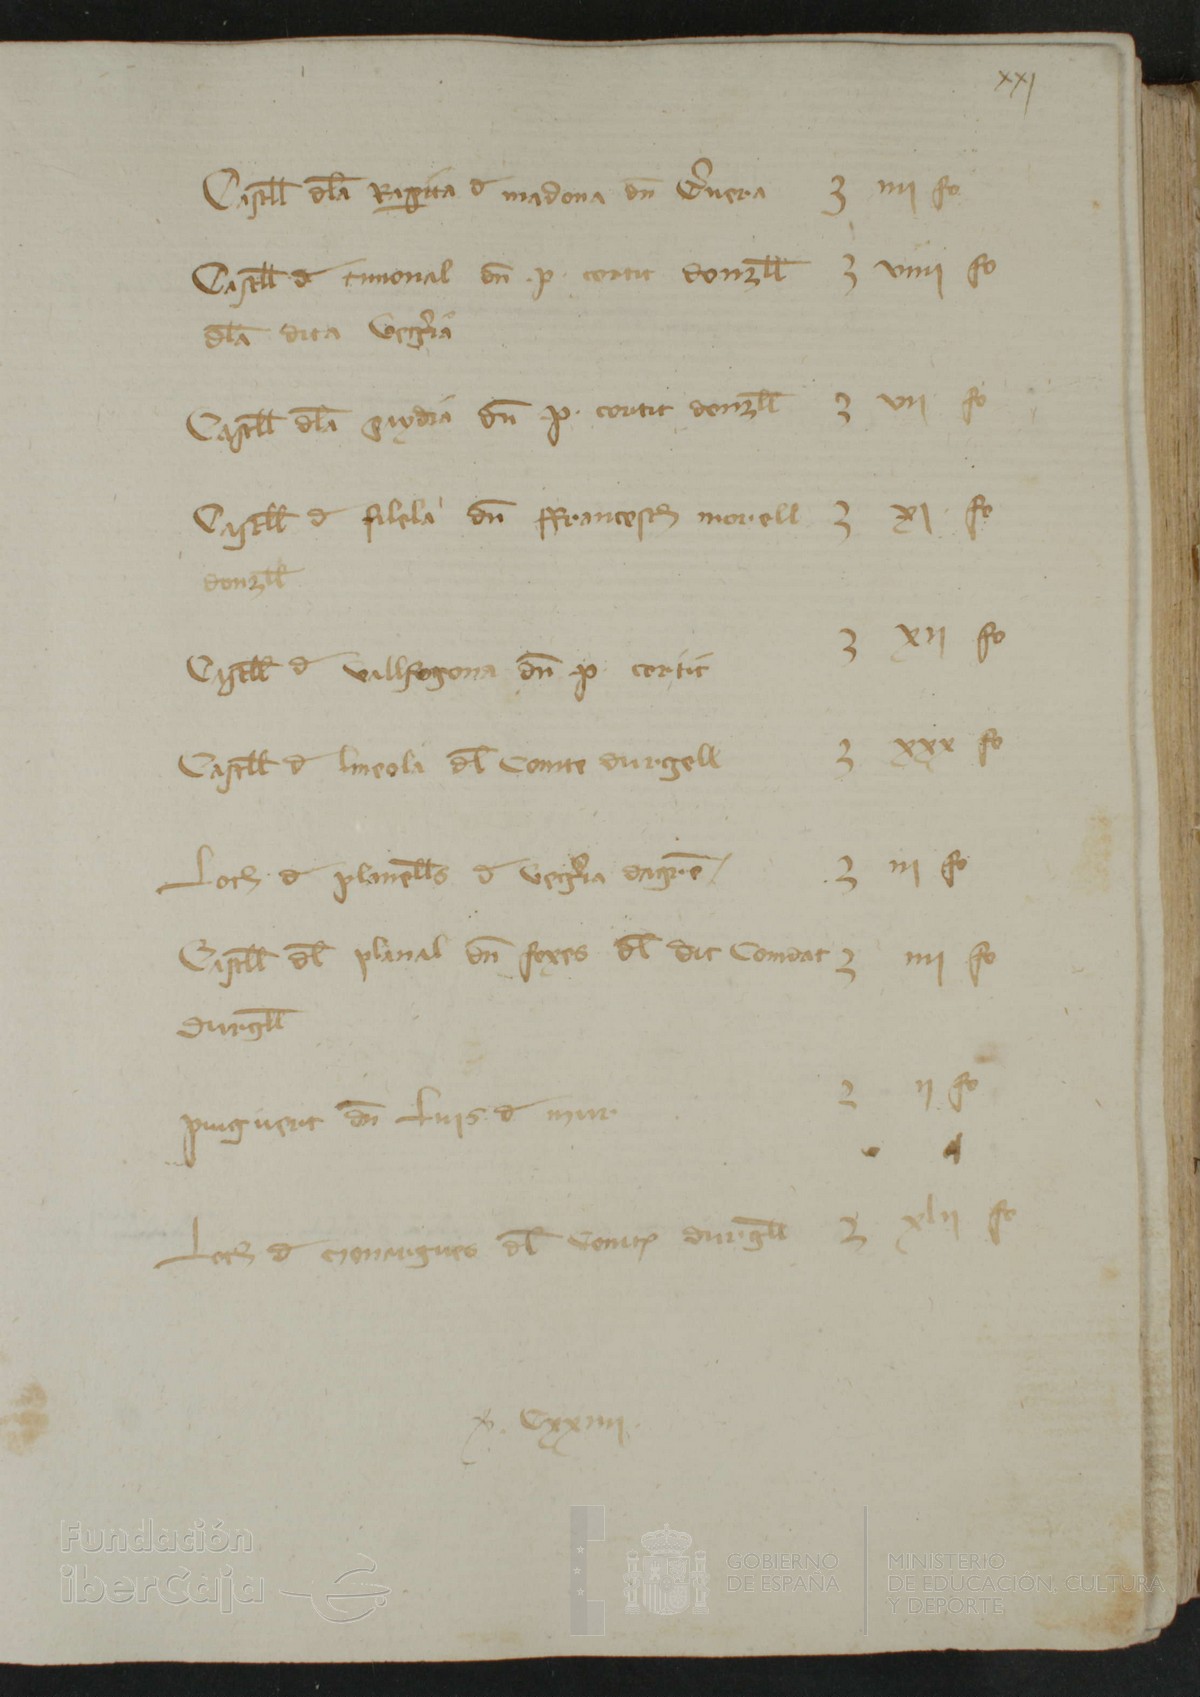 xxj
Castell dla Rapita d madona dn Cervera ⁊ iiij fo
Castell d timonal dn .p. cortit donzell ⁊ viiij fo
dla dita vegria
Castell dla guydia dn p. cortit donzell ⁊ vij fo
Castell d filela dn ffrancesch morell ⁊ xj fo
donzell
Castell d vallfogona dn p. cortit ⁊ xij fo
Castell d lineola dl Comte durgell ⁊ xxx fo
Loch d planells d vegria dagre ⁊ iij fo
Castell dl planal dn foxes dl dit Comdat ⁊ iiij fo
durgell
puigvert dn Luis d mur ⁊ ij fo
Loch d monargues dl Comte durgell ⁊ xlij fo
Cxxiiij
Fundación
iberCaja
GOBIERNO
DE ESPAÑA
MINISTERIO
DE EDUCACIÓN, CULTURA
Y DEPORTE